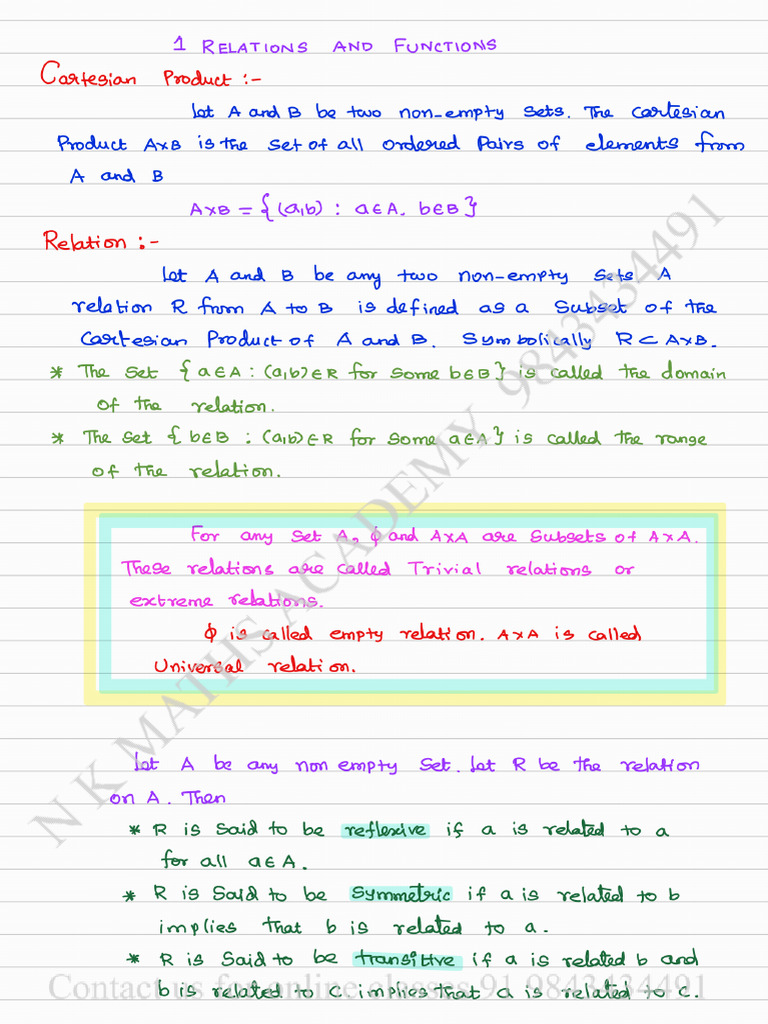 1 RELATIONS AND FUNCTIONS
Cartesian Product :-
Let A and B be two non-empty sets. The Cartesian
Product A×B is the set of all ordered Pairs of elements from
A and B
A×B = {(a,b) : a∈A, b∈B}
Relation :-
Let A and B be any two non-empty sets. A
relation R from A to B is defined as a Subset of the
Cartesian Product of A and B. Symbolically R⊂A×B.
* The set {a∈A : (a,b)∈R for some b∈B} is called the domain
of the relation.
* The set {b∈B : (a,b)∈R for some a∈A} is called the range
of the relation.
For any set A, ϕ and A×A are Subsets of A×A.
These relations are called Trivial relations or
extreme relations.
ϕ is called empty relation. A×A is called
Universal relation.
Let A be any non empty Set. Let R be the relation
on A. Then
* R is said to be reflexive if a is related to a
for all a∈A.
* R is Said to be Symmetric if a is related to b
implies that b is related to a.
* R is Said to be transitive if a is related b and
b is related to c implies that a is related to c.
N K MATHS ACADEMY 9843434491
Contact us for online classes 91 9843434491